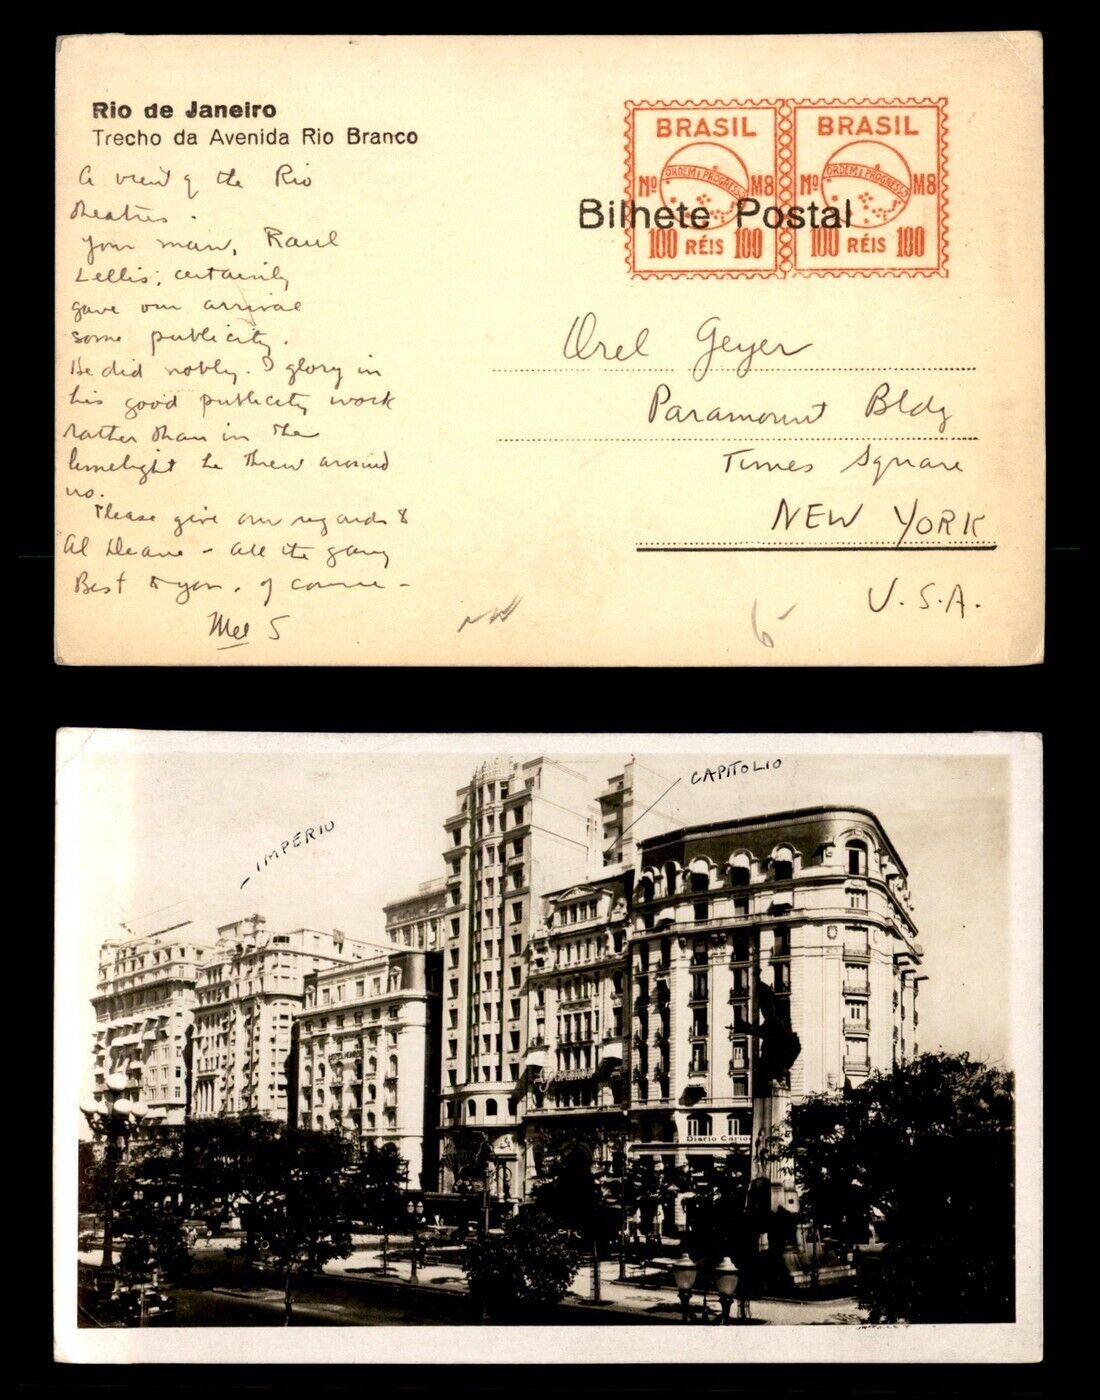 Rio de Janeiro
Trecho da Avenida Rio Branco
A view of the Rio
theatres.
Your man, Raul
Lellis, certainly
gave our arrival
some publicity.
He did nobly. I glory in
his good publicity work
rather than in the
limelight he threw around
us.
Please give our regards to
Al Deane - all the gang
Best to you, of course -
Mel S
BRASIL BRASIL
ORDEM E PROGRESSO ORDEM E PROGRESSO
Nº M8 Nº M8
Bilhete Postal
100 RÉIS 100 100 RÉIS 100
Orel Geyer
Paramount Bldg
Times Square
NEW YORK
U.S.A.
6-
CAPITOLIO
IMPERIO
Diario Cario